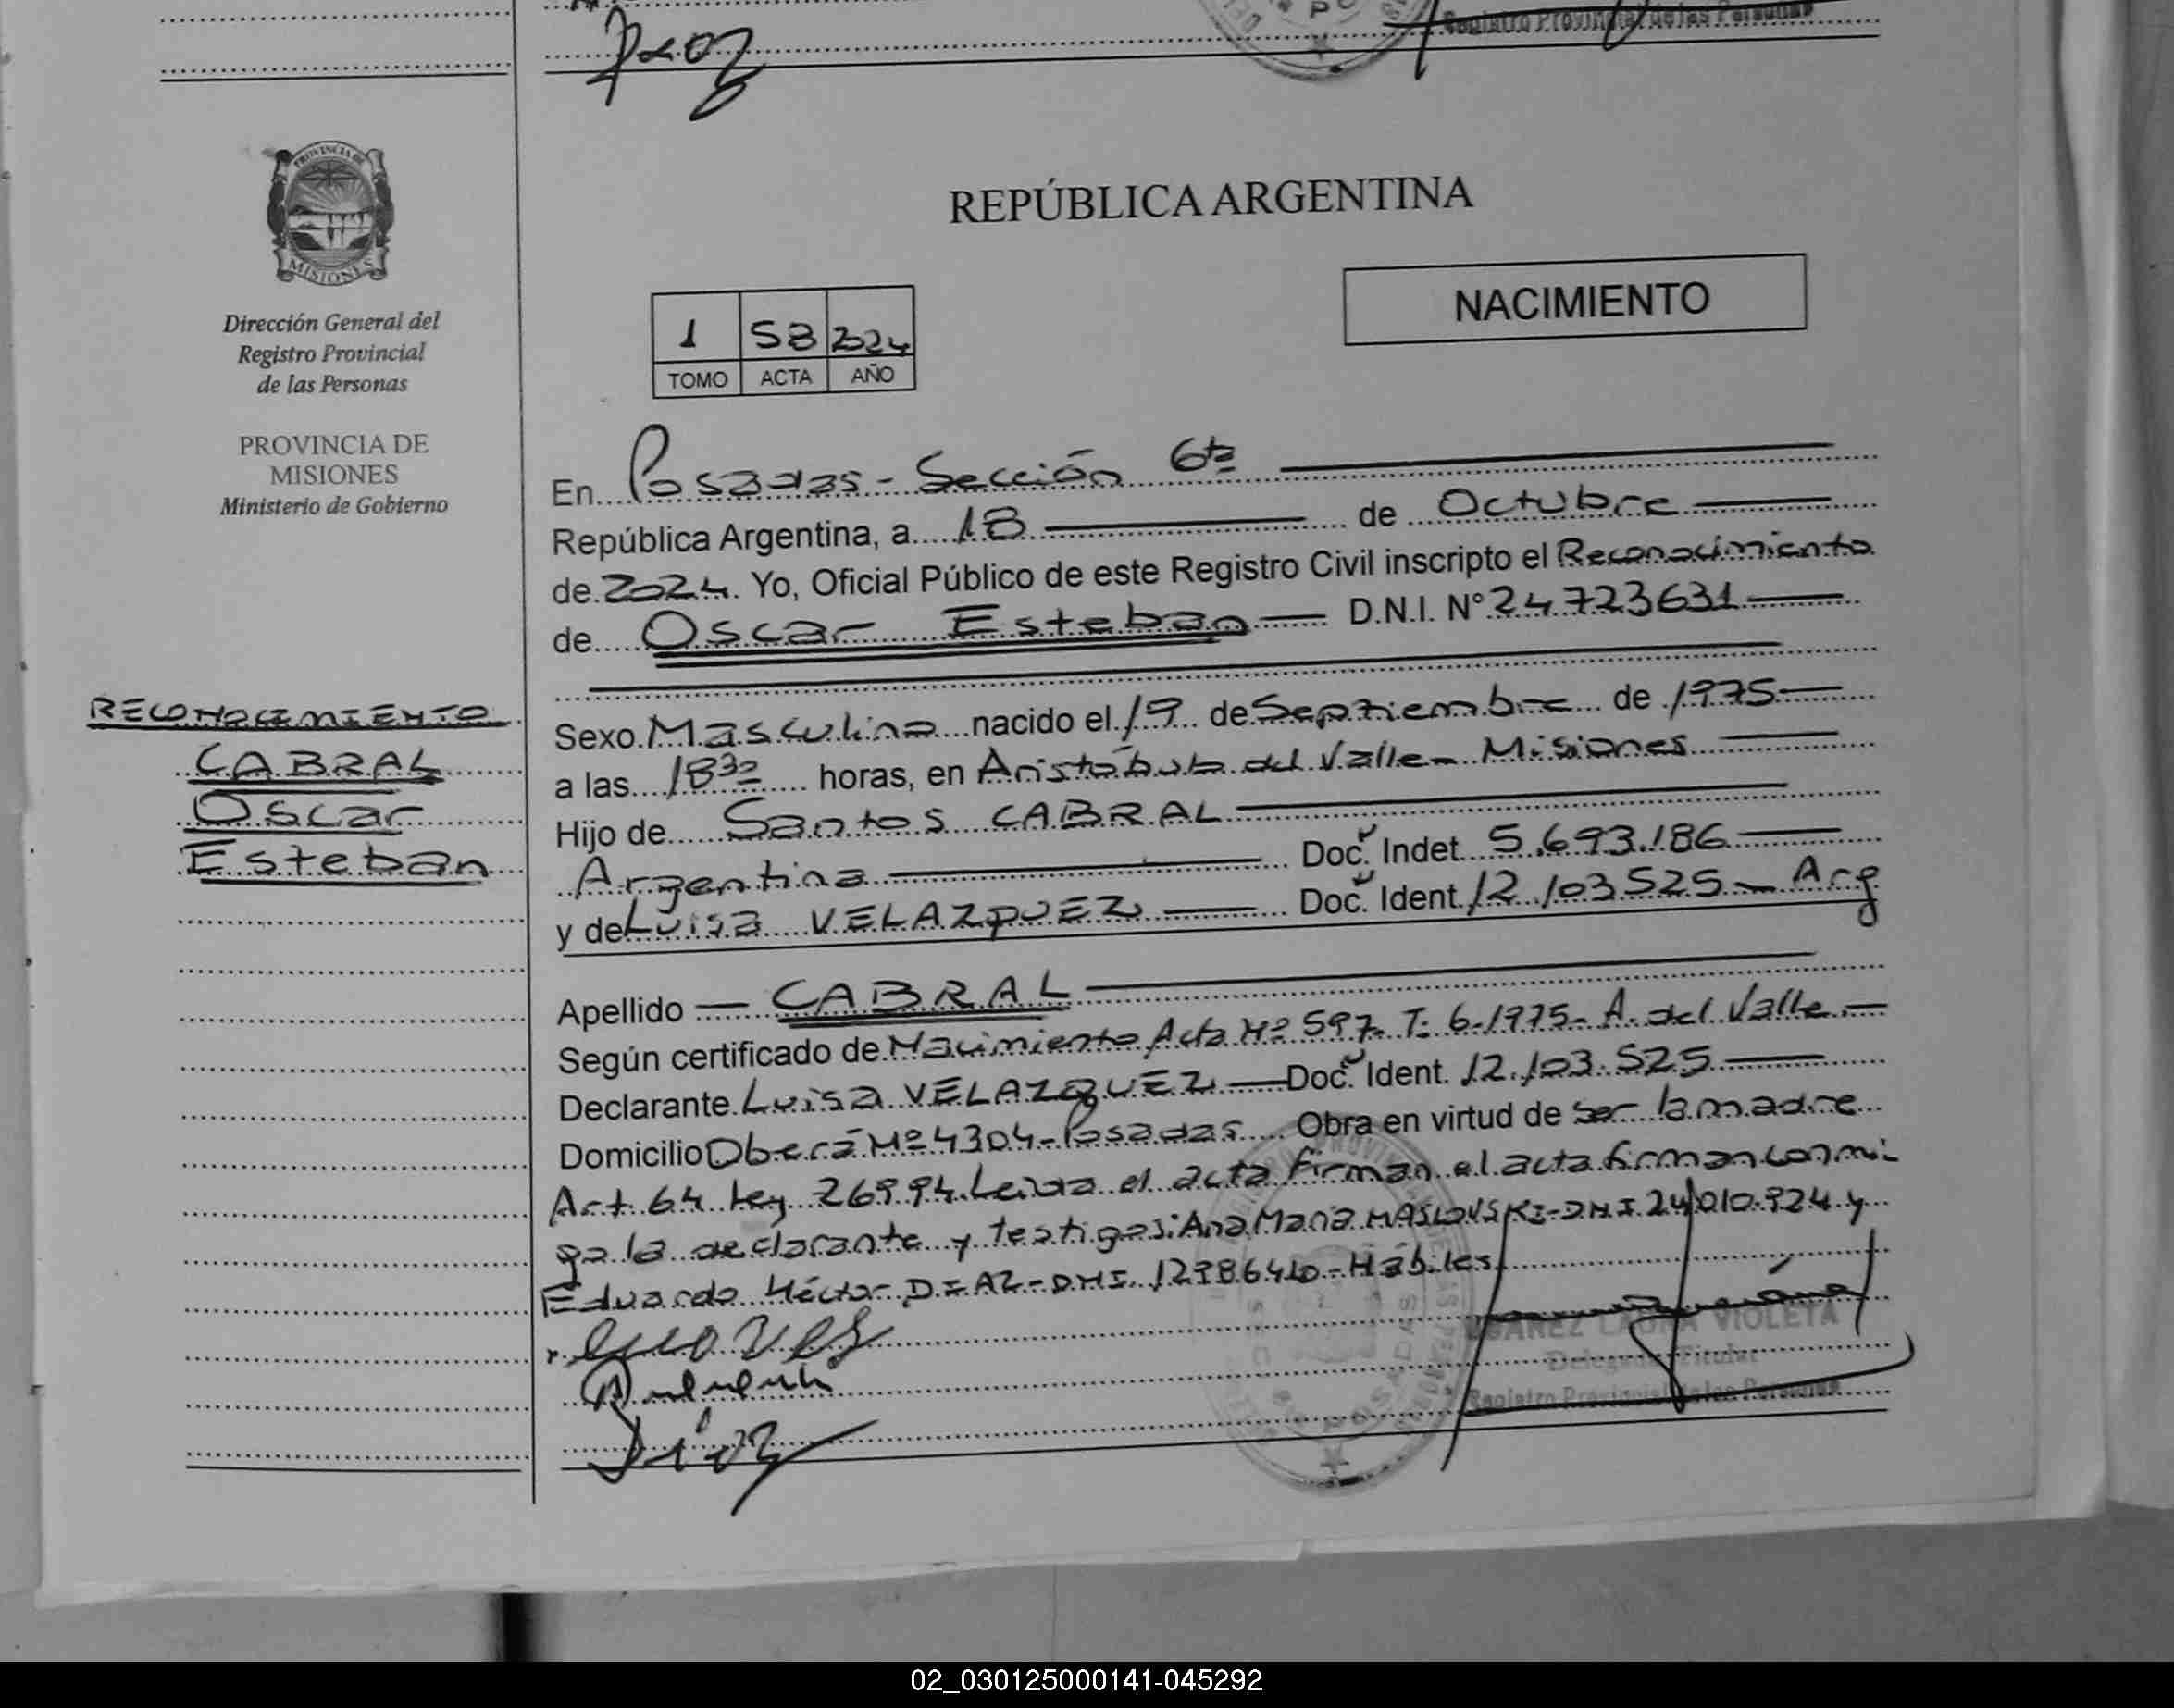 Registro Provincial de las Personas
PROVINCIA DE
MISIONES
Dirección General del
Registro Provincial
de las Personas
PROVINCIA DE
MISIONES
Ministerio de Gobierno
RECONOCIMIENTO
CABRAL
Oscar
Esteban
REPÚBLICA ARGENTINA
NACIMIENTO
1 58 2024
TOMO ACTA AÑO
En Posadas - Sección 6ta
República Argentina, a 18 de Octubre
de 2024. Yo, Oficial Público de este Registro Civil inscripto el Reconocimiento
de Oscar Esteban D.N.I. N° 24.723631
Sexo Masculino nacido el 19 de Septiembre de 1975
a las 18 30 horas, en Aristóbulo del Valle - Misiones
Hijo de Santos CABRAL
Argentina Doc. Indet. 5.693.186
y de Luisa VELAZQUEZ Doc. Ident. 12.103525 - Arg
Apellido CABRAL
Según certificado de Nacimiento Acta Nº 597 - T: 6-1975 - A. del Valle -
Declarante Luisa VELAZQUEZ Doc. Ident. 12.103.525
Domicilio Oberá Nº 4304 - Posadas Obra en virtud de ser la madre
Art. 64 Ley 26994. Leida el acta firman el acta firman conmi
go la declarante y testigos: Ana Maria MASLOVSKI - DNI 24.010.924 y
Eduardo Héctor DIAZ - DNI. 12986410 - Hábiles
LAURA VIOLETA
Delegada Titular
Registro Provincial de las Personas
Díaz
02_030125000141-045292